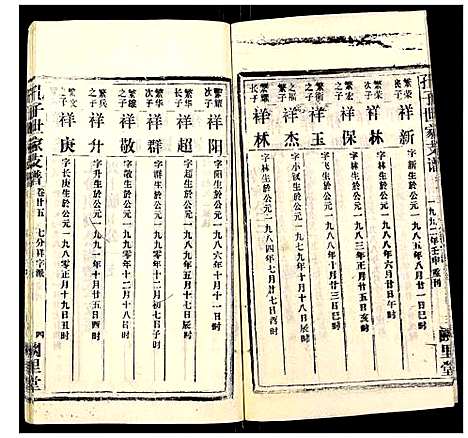 孔子世家支谱
一九九二年壬申叁刊
三 阙里堂
繁荣长子 祥新 字新生於公元一九八五年八月一日丑时
繁荣次子 祥林 字林生於公元一九八八年六月廿日午时
繁宏之子 祥保 字林生於公元一九八三年正月廿五日亥时
祥玉 字玉生於公元一九八八年十月十三日亥时
之子 祥杰 字小斌生於公元一九八九年十月十八日辰时
繁耀长子 祥林 字林生於公元一九八四年七月初六日卯时
繁耀次子 祥阳 字阳生於公元一九八六年十月十一日时
繁华长子 祥超 字超生於公元一九八五年五月廿八日辰时
繁华次子 祥群 字群生於公元一九九〇年十二月初七日子时
繁雄之子 祥敬 字敬生於公元一九九〇年十月十八日时
繁兵之子 祥升 字升生於公元一九九一年十月廿五日酉时
繁文之子 祥庚 字长庚生於公元一九八〇正月十九日丑时
孔子世家支谱 卷廿五 七分祥字派
四 阙里堂